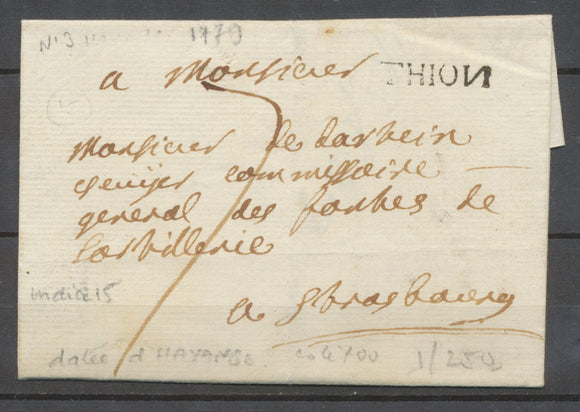 N°3 1779
a Monsieur THION
Monsieur de Barbein
Ecuijer commissaire
general des fontes de
Lartillerie
a Strasbourg
indice 15
datée d'HAYANGE cote 700 1/250